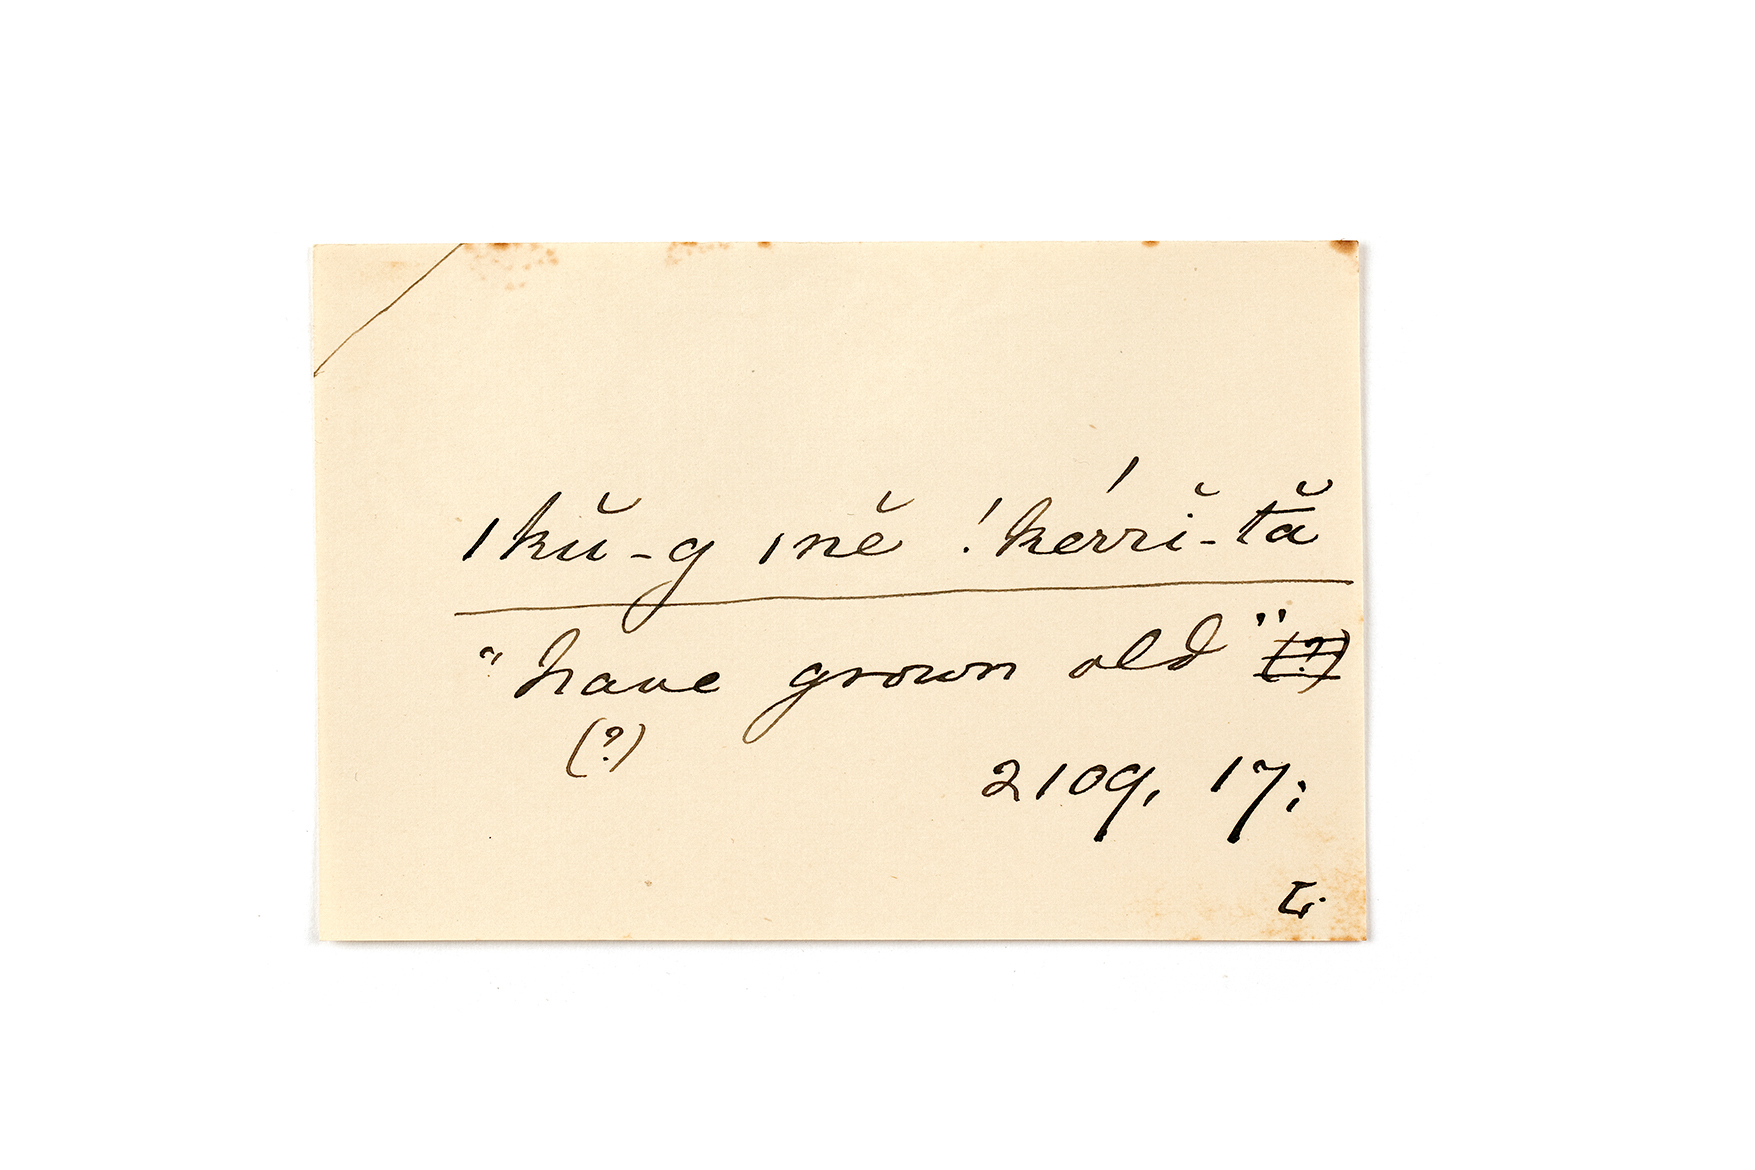 ǀkŭ-g ǀnĕ !kérrĭ-tă
"have grown old" (?)
(?)
2109, 17;
L.